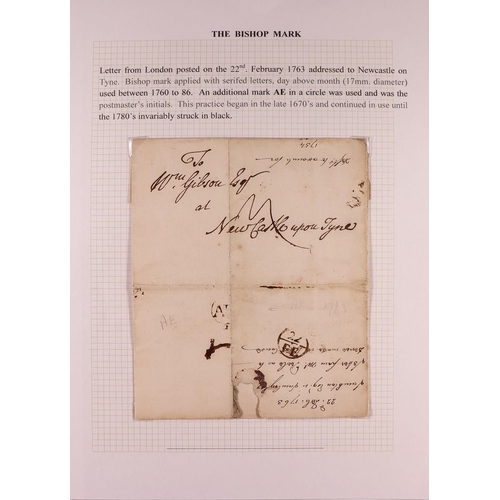 THE BISHOP MARK
Letter from London posted on the 22nd. February 1763 addressed to Newcastle on
Tyne. Bishop mark applied with serifed letters, day above month (17mm. diameter)
used between 1760 to 86. An additional mark AE in a circle was used and was the
postmaster's initials. This practice began in the late 1670's and continued in use until
the 1780's invariably struck in black.
To
Wm Gibson Esqr
at
NewCastle upon Tyne
AE
22. Feb. 1763